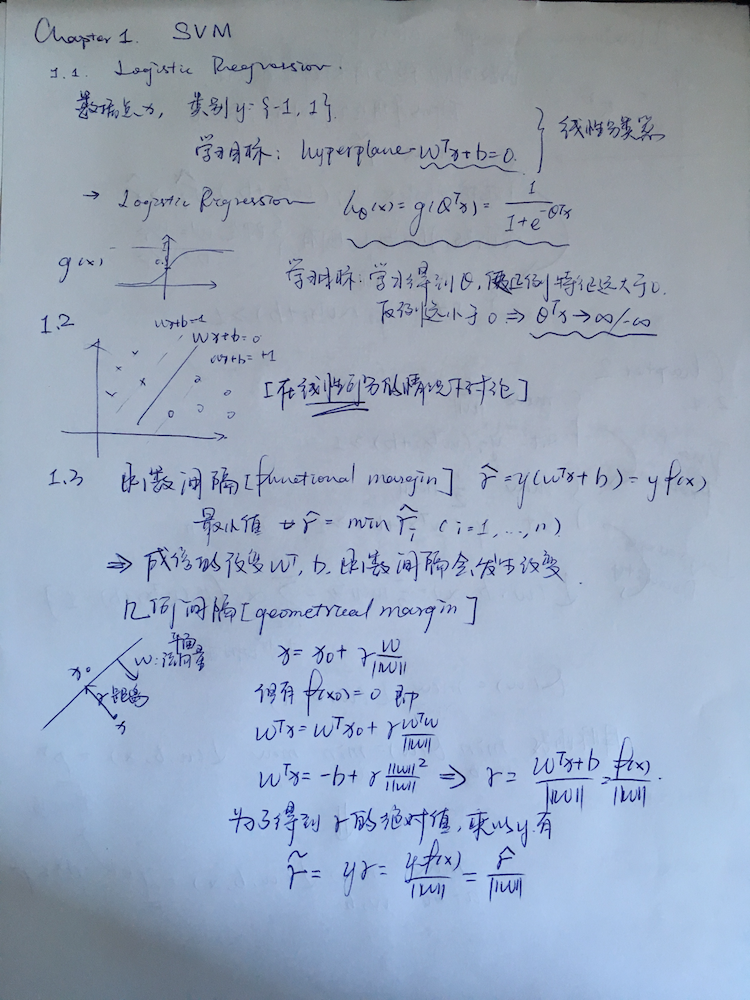 Chapter 1. SVM
1.1. Logistic Regression.
数据点x, 类别y={-1, 1}.
学习目标: hyperplane wᵀx+b=0.
} 线性分类器
→ Logistic Regression h_θ(x)=g(θᵀx)= 1/(1+e^{-θᵀx})
g(x)
1
0.5
学习目标: 学习得到θ, 使正例特征远大于0.
反例远小于0 ⇒ θᵀx→∞/-∞
1.2
wx+b=-1
wx+b=0
wx+b=+1
[在线性可分的情况下讨论]
1.3 函数间隔[functional margin] r̂=y(wᵀx+b)=yf(x)
最小值 r̂=min r̂ᵢ (i=1,...,n)
⇒ 成倍的改变wᵀ, b. 函数间隔会发生改变.
几何间隔[geometrical margin]
x₀
w:平面法向量
r距离
x
x=x₀+r w/||w||
但有f(x₀)=0 即
wᵀx=wᵀx₀+r wᵀw/||w||
wᵀx=-b+r ||w||²/||w|| ⇒ r= (wᵀx+b)/||w|| = f(x)/||w||.
为了得到r的绝对值, 乘以y.有
r̃= yr= yf(x)/||w|| = r̂/||w||